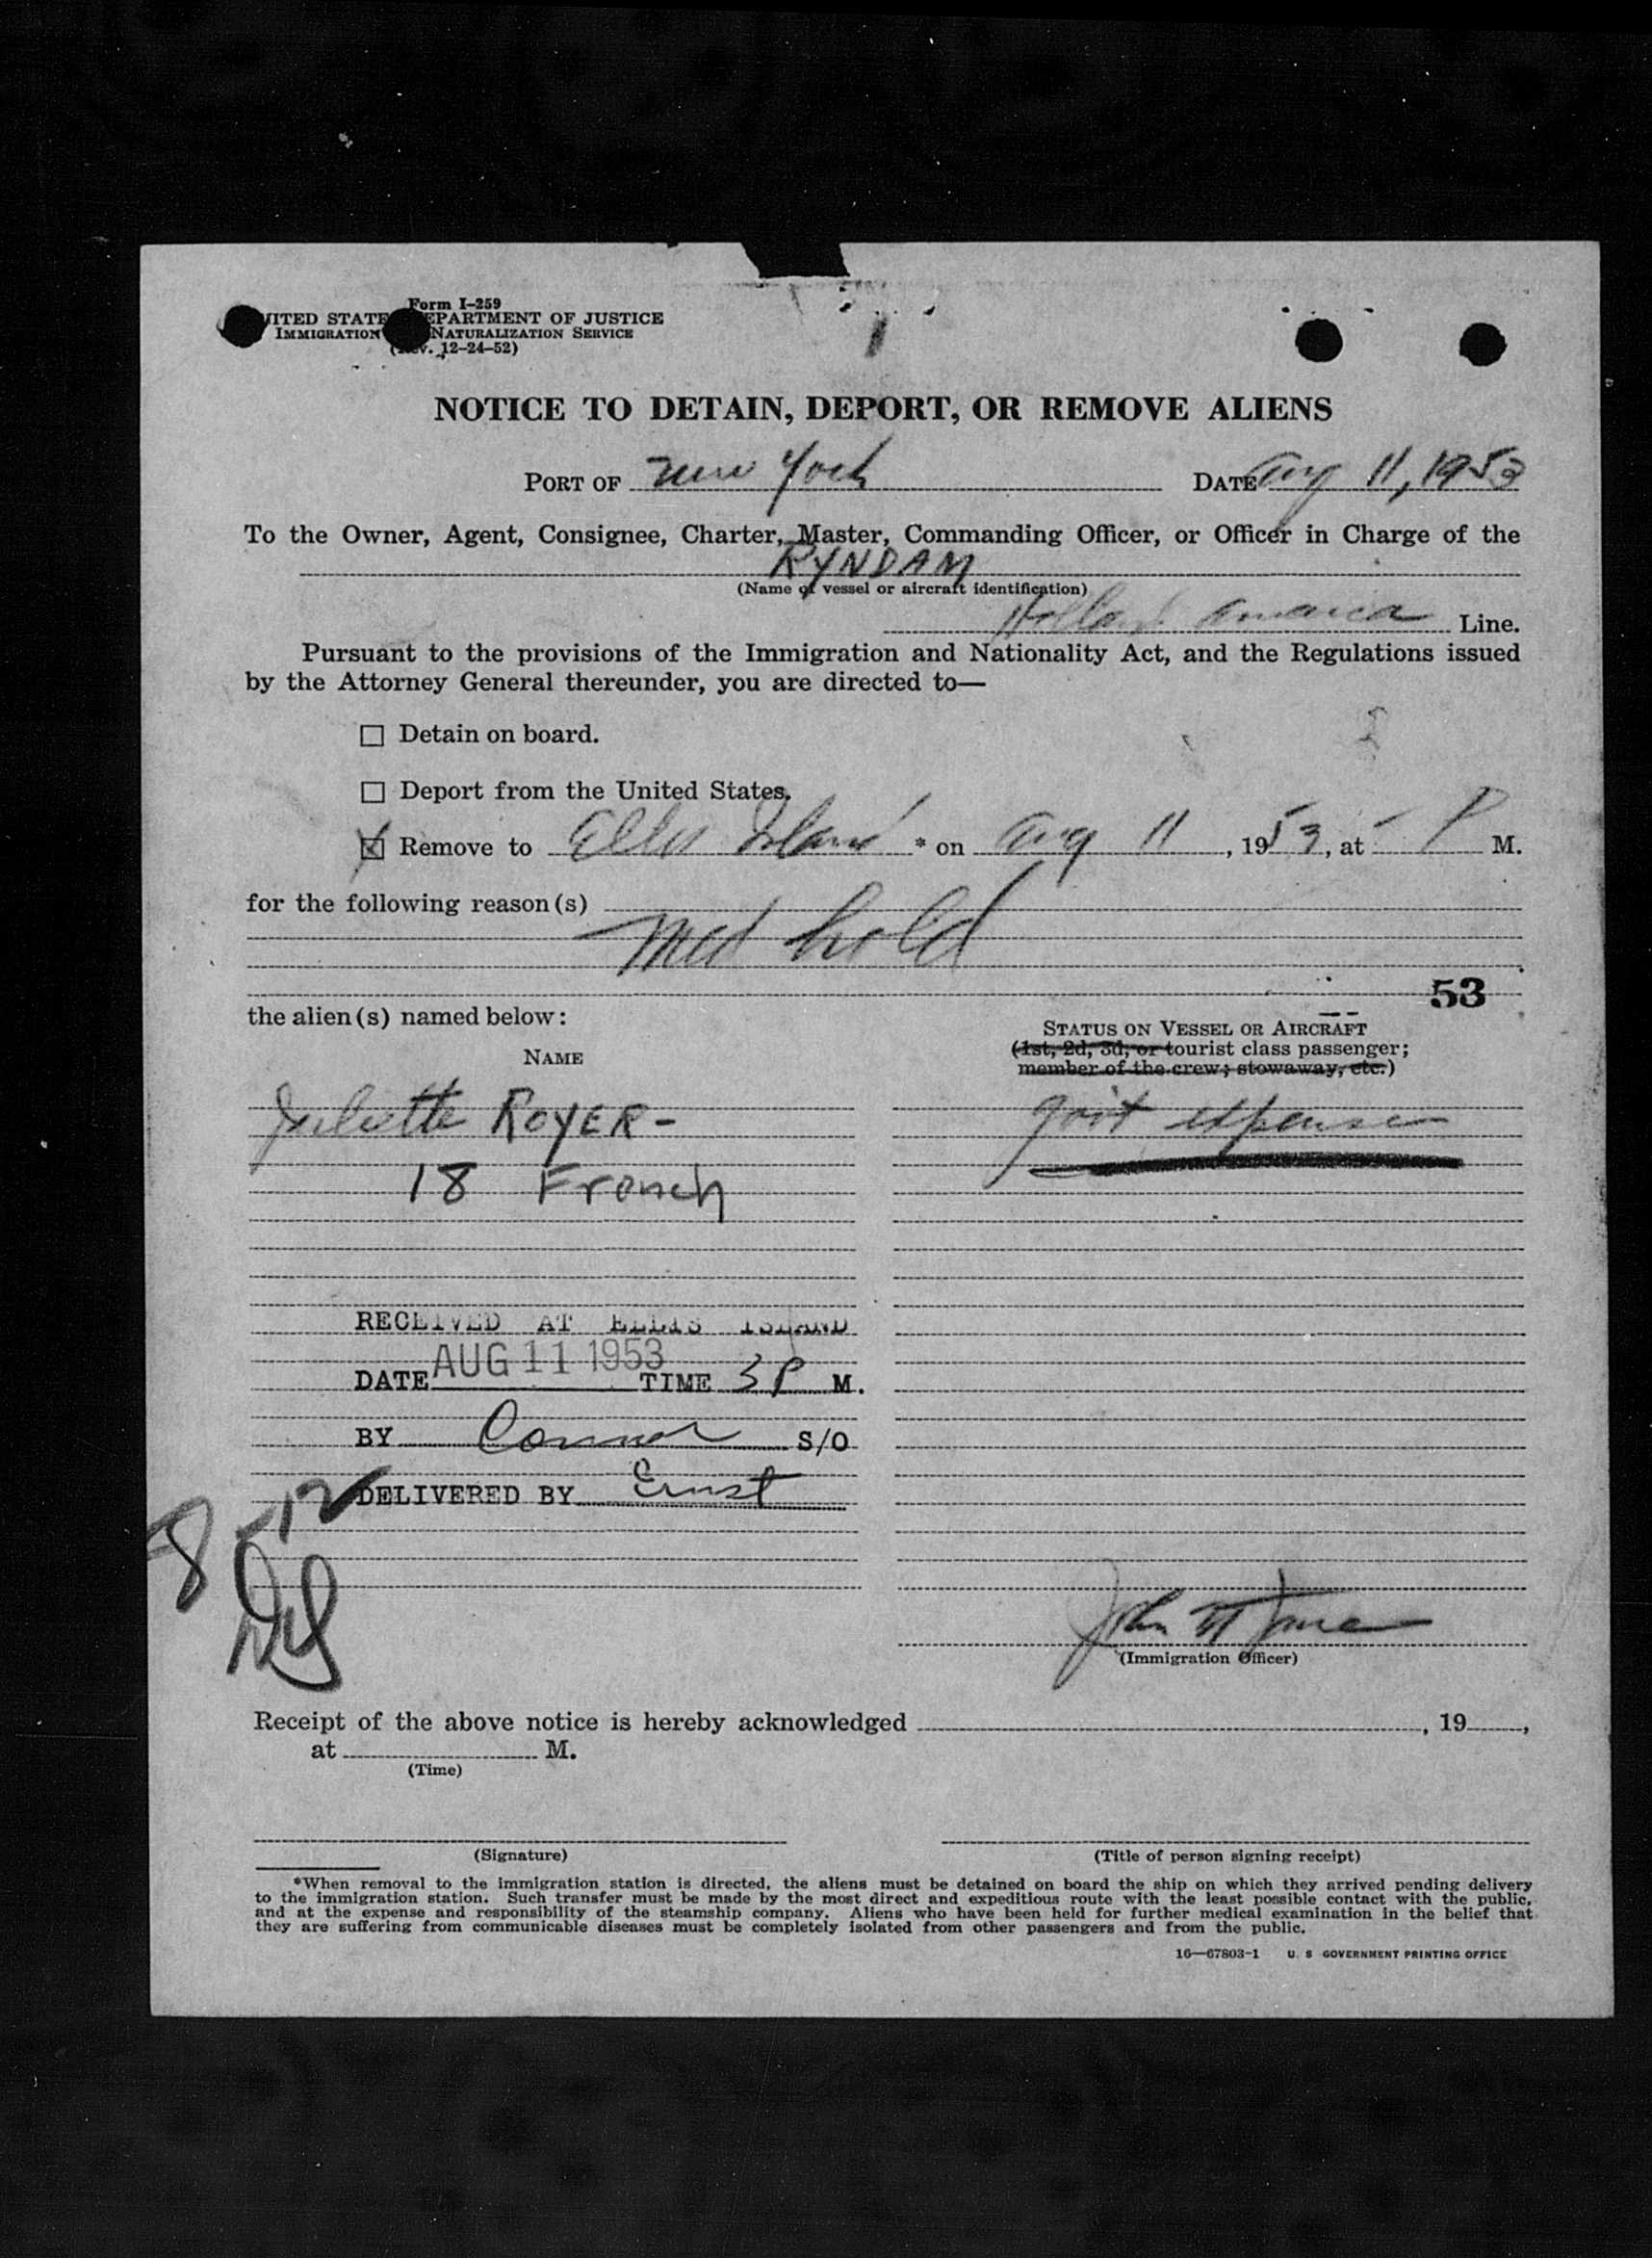 Form I-259
UNITED STATES DEPARTMENT OF JUSTICE
IMMIGRATION NATURALIZATION SERVICE
(Rev. 12-24-52)
NOTICE TO DETAIN, DEPORT, OR REMOVE ALIENS
PORT OF New York DATE Aug 11, 1953
To the Owner, Agent, Consignee, Charter, Master, Commanding Officer, or Officer in Charge of the
RYNDAM
(Name of vessel or aircraft identification)
Holland America Line.
Pursuant to the provisions of the Immigration and Nationality Act, and the Regulations issued
by the Attorney General thereunder, you are directed to—
☐ Detain on board.
☐ Deport from the United States.
☒ Remove to Ellis Island * on Aug 11, 1953, at - P M.
for the following reason(s)
Med hold
53
the alien(s) named below:
NAME
STATUS ON VESSEL OR AIRCRAFT
(1st, 2d, 3d, or tourist class passenger;
member of the crew; stowaway, etc.)
Juliette ROYER-
govt expense
18 French
RECEIVED AT ELLIS ISLAND
DATE AUG 11 1953 TIME 3 P M.
BY Connor S/O
DELIVERED BY Ernst
8-12
John
(Immigration Officer)
Receipt of the above notice is hereby acknowledged , 19 ,
at M.
(Time)
(Signature)
(Title of person signing receipt)
*When removal to the immigration station is directed, the aliens must be detained on board the ship on which they arrived pending delivery
to the immigration station. Such transfer must be made by the most direct and expeditious route with the least possible contact with the public,
and at the expense and responsibility of the steamship company. Aliens who have been held for further medical examination in the belief that
they are suffering from communicable diseases must be completely isolated from other passengers and from the public.
16—67803-1 U. S GOVERNMENT PRINTING OFFICE